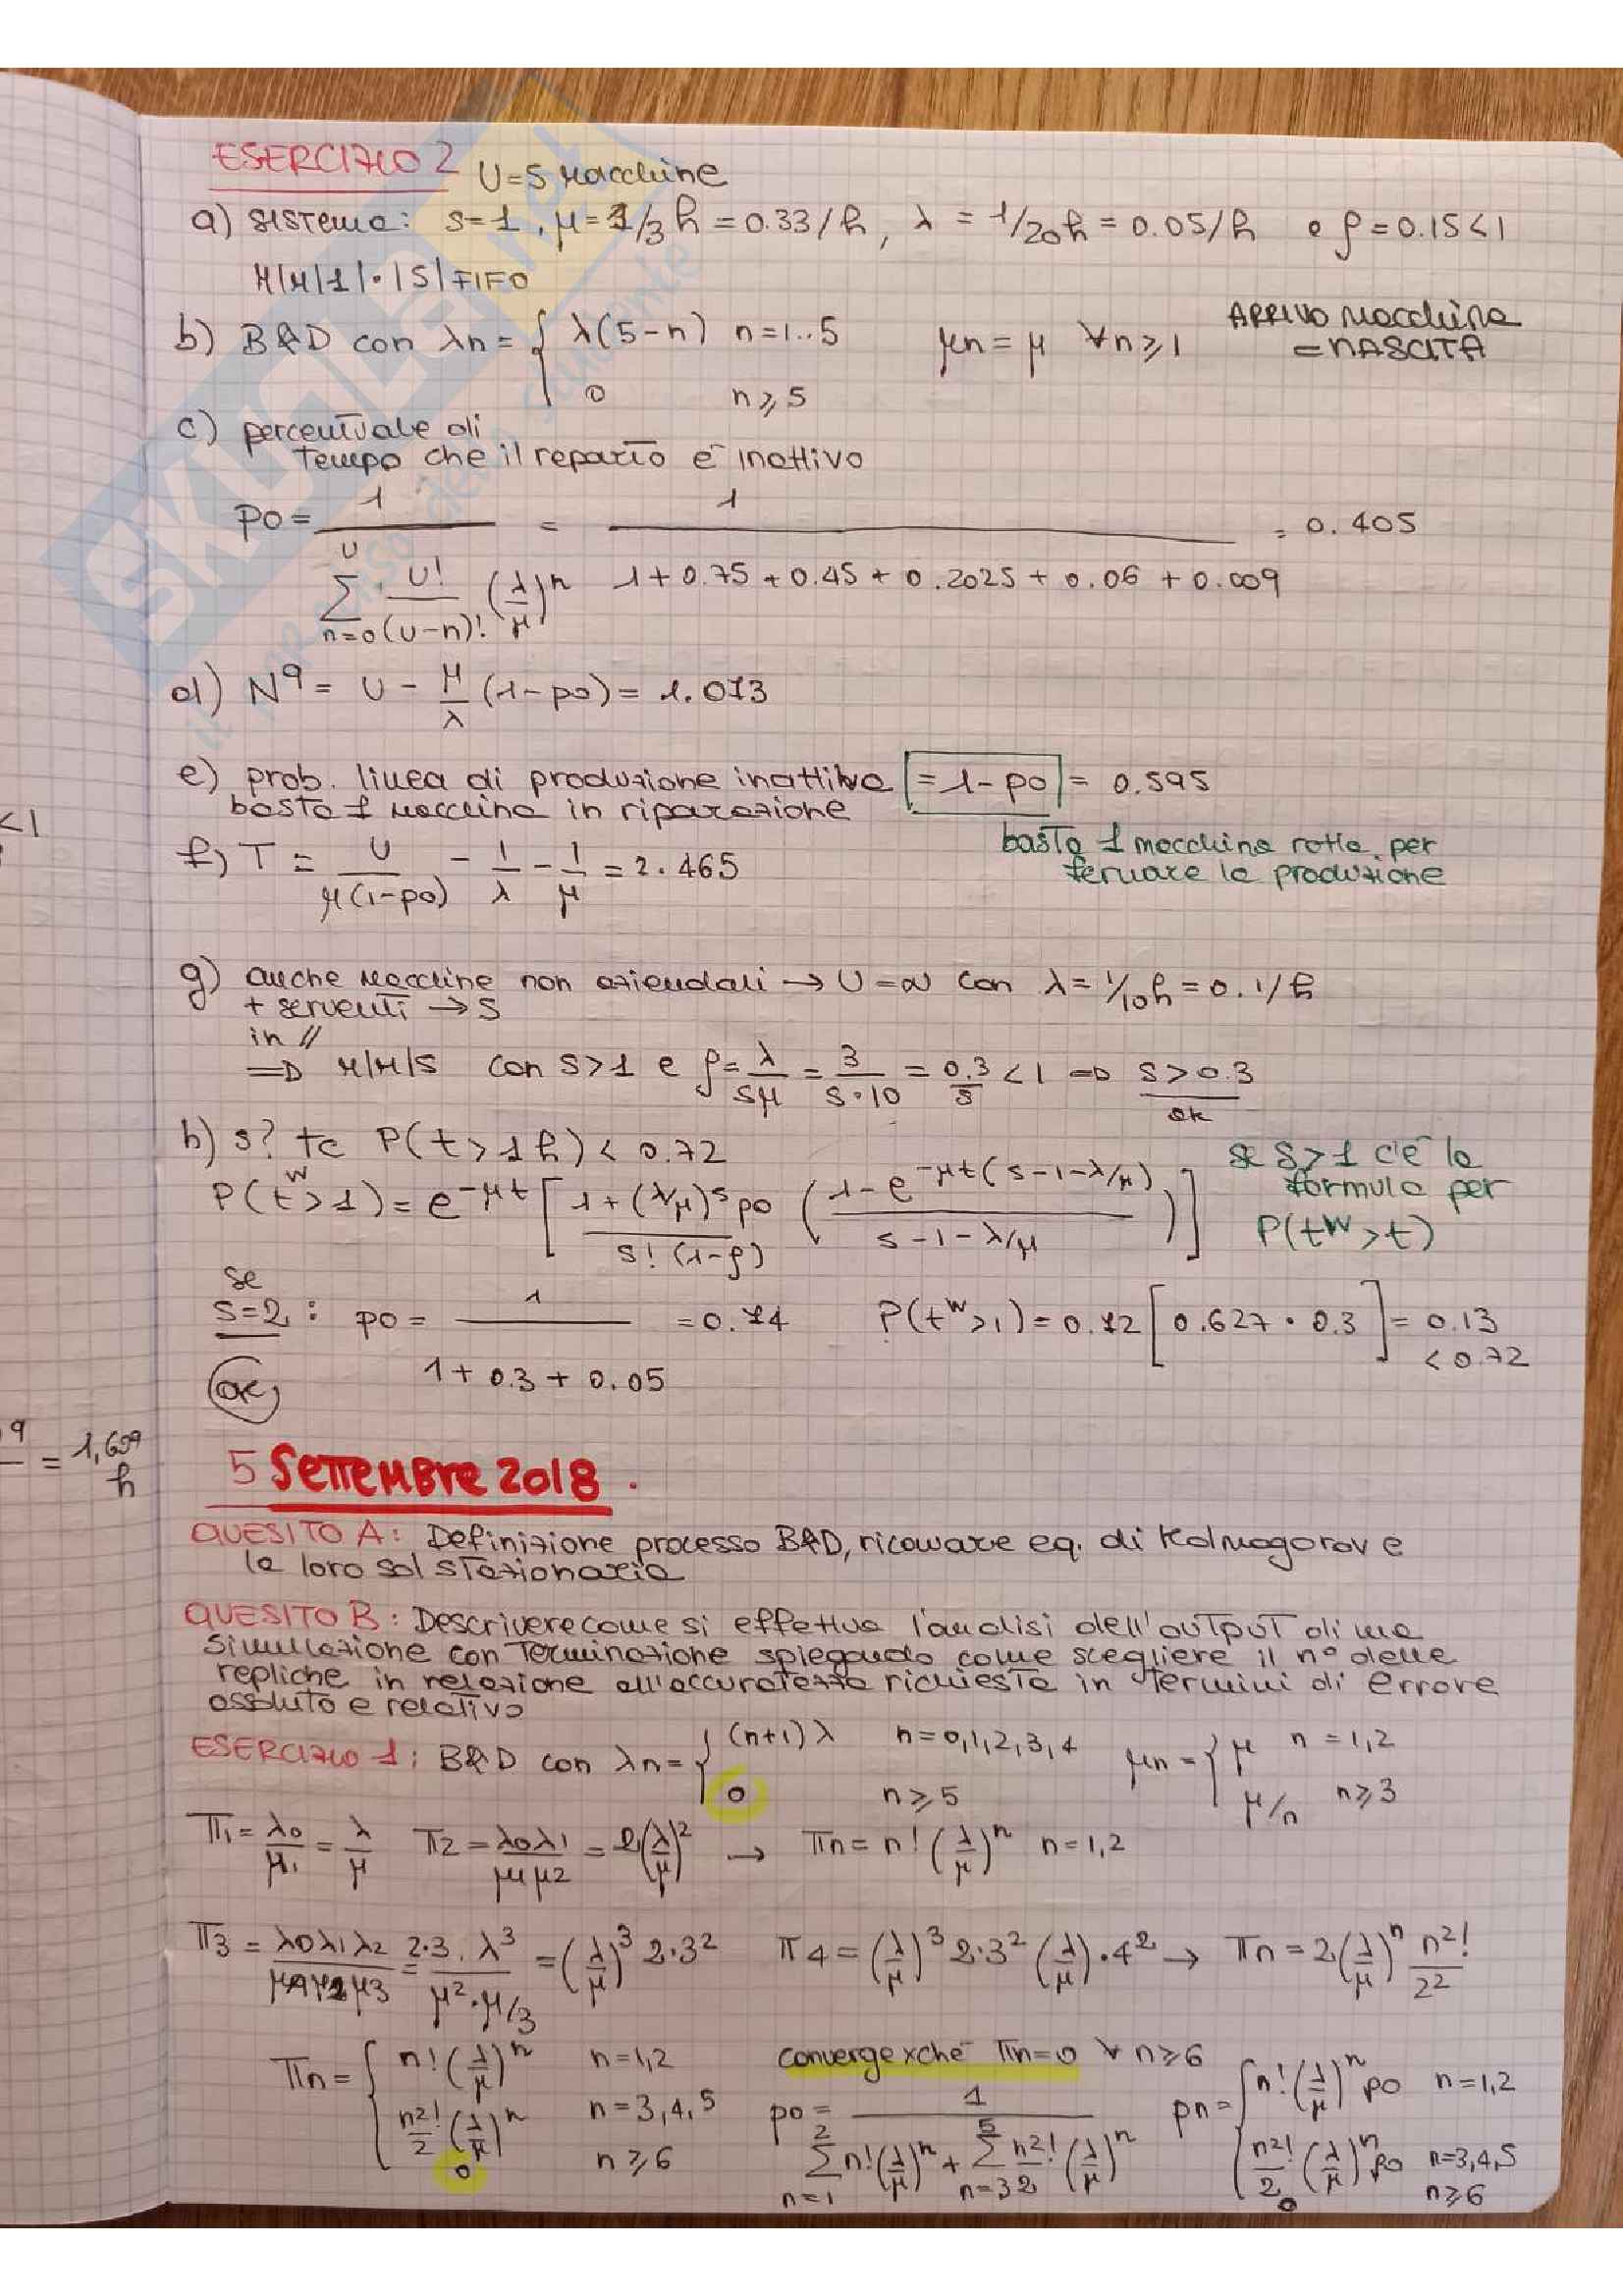 ESERCIZIO 2 U=5 macchine
a) sistema: s=1, μ=1/3 h = 0.33/h, λ = 1/20h = 0.05/h e ρ=0.15<1
M|M|1|·|5|FIFO
b) B&D con λn = { λ(5-n) n=1..5 μn = μ ∀n≥1 ARRIVO macchina
= NASCITA
0 n≥5
c) percentuale di
tempo che il reparto è inattivo
po = 1 / ∑ n=0 U U!/(U-n)! (λ/μ)^n = 1 / 1+0.75+0.45+0.2025+0.06+0.009 = 0.405
d) N^q = U - μ/λ (1-po) = 1.073
e) prob. linea di produzione inattiva =1-po = 0.595
basta 1 macchina in riparazione
basta 1 macchina rotta per
fermare la produzione
f) T = U/μ(1-po) - 1/λ - 1/μ = 2.465
g) anche macchine non aziendali → U=∞ con λ=1/10h=0.1/h
+ serventi → S
in //
⇒ M/M/S con S>1 e ρ=λ/sμ = 3/s·10 = 0.3/s <1 ⇒ S>0.3
ok
h) s? tc P(t>1h) < 0.72
P(t^w>1) = e^-μt [ 1+(λ/μ)^s po / s!(1-ρ) ( 1-e^-μt(s-1-λ/μ) / s-1-λ/μ ) ]
se S>1 c'è la
formula per
P(t^w>t)
se
s=2: po = 1 / 1+0.3+0.05 = 0.74 P(t^w>1) = 0.72 [ 0.627 · 0.3 ] = 0.13
< 0.72
ok
<1
9
= 1,609
h
5 SETTEMBRE 2018.
QUESITO A: Definizione processo B&D, ricavare eq. di Kolmogorov e
la loro sol stazionaria
QUESITO B: Descrivere come si effettua l'analisi dell'output di una
simulazione con terminazione spiegando come scegliere il n° delle
repliche in relazione all'accuratezza richiesta in termini di errore
assoluto e relativo
ESERCIZIO 1: B&D con λn = { (n+1)λ n=0,1,2,3,4 μn = { μ n=1,2
0 n≥5 μ/n n≥3
π1 = λ0/μ1 = λ/μ π2 = λ0λ1/μ1μ2 = 2(λ/μ)^2 → πn = n! (λ/μ)^n n=1,2
π3 = λ0λ1λ2/μ1μ2μ3 = 2·3·λ^3/μ^2·μ/3 = (λ/μ)^3 2·3^2 π4 = (λ/μ)^3 2·3^2 (λ/μ)·4^2 → πn = 2(λ/μ)^n n^2!/2^2
πn = { n! (λ/μ)^n n=1,2
n^2!/2 (λ/μ)^n n=3,4,5
0 n≥6
converge xchè πn=0 ∀ n≥6
po = 1 / ∑ n=1 2 n!(λ/μ)^n + ∑ n=3 5 n^2!/2 (λ/μ)^n
pn = { n! (λ/μ)^n po n=1,2
n^2!/2 (λ/μ)^n po n=3,4,5
0 n≥6